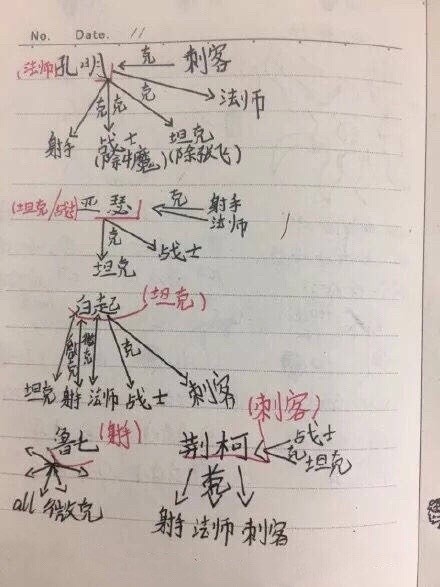 No. Date. 11
(法师)孔明 克 刺客
克 克 克 法师
射手 战士 坦克
(除牛魔) (除张飞)
(坦克/战士) 亚瑟 克 射手
法师
克 战士
坦克
白起 (坦克)
微克 克
坦克 射手 法师 战士 刺客
鲁七 (射手) 荆柯 (刺客) 战士
克 坦克
克
all 微克
射手 法师 刺客